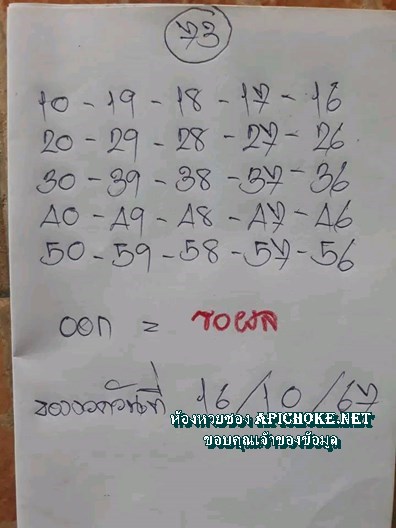 73
10 - 19 - 18 - 17 - 16
20 - 29 - 28 - 27 - 26
30 - 39 - 38 - 37 - 36
40 - 49 - 48 - 47 - 46
50 - 59 - 58 - 57 - 56
ออก = รอผล
ของงวดวันที่ 16/10/67
ห้องหวยซอง APICHOKE.NET
ขอบคุณเจ้าของข้อมูล